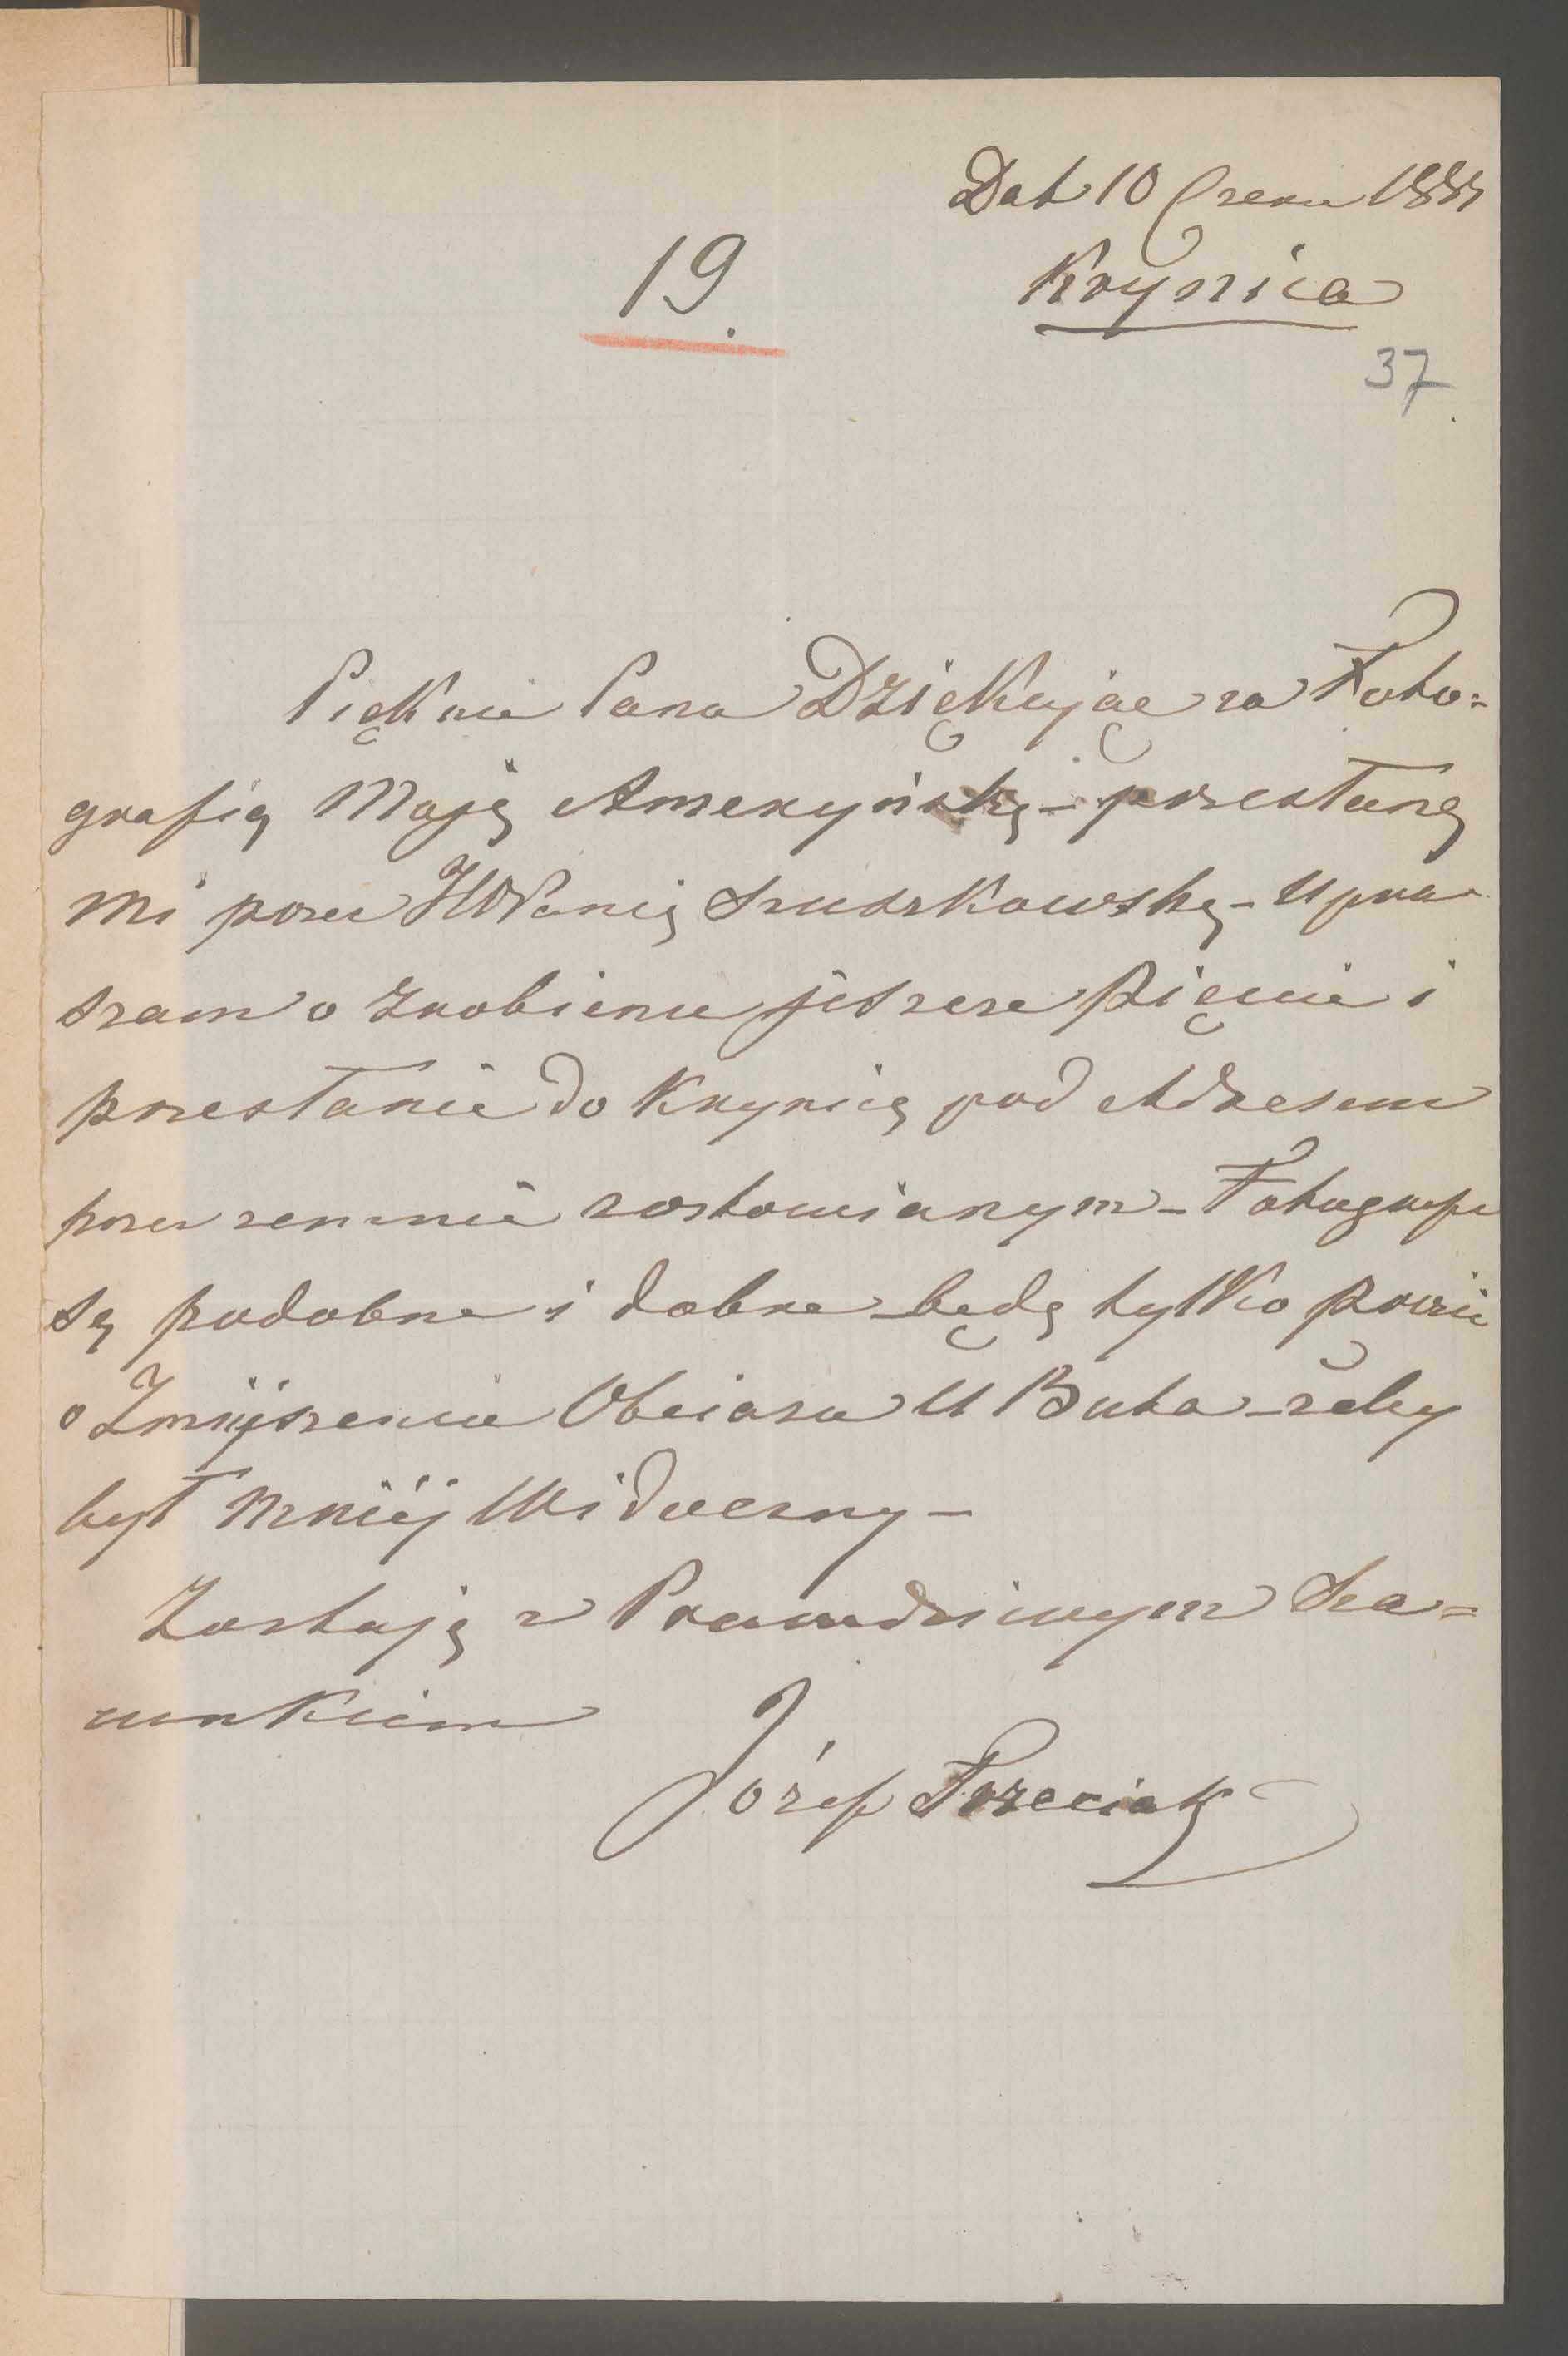 Dat 10 Czerw 188
Krynica
19.
37
Pięknie Pana Dziękując za Foto=
grafię Moję Amerynńską – przesłaną
mi przez JWPanią Szuszkowską – Upra
szam o zrobienie jeszcze pięcie i
przesłanie do Krynicę pod Adresem
przez zemnie zostawianym – Fotografie
są podobne i dobre będą tylko proszę
o Zmnijszenie Obciasu U Buta – żeby
był mniéj Widoczny –
Zostaję z Prawdziwym Sza=
cunkiem
Józef Trzeciak